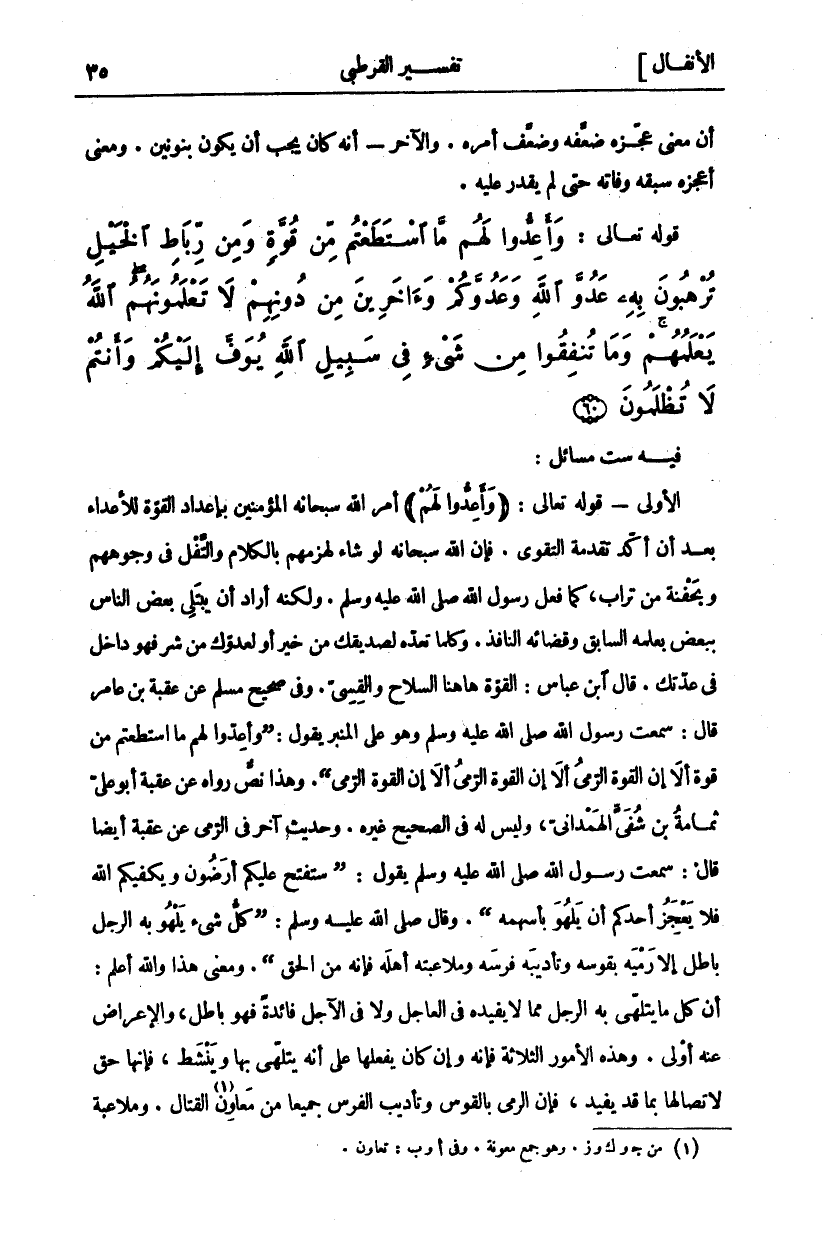 الأنفال ] تفسير القرطبي ٣٥
أن معنى عجّزه ضعّفه وضعّف أمره . والآخر – أنه كان يجب أن يكون بنونين . ومعنى
أعجزه سبقه وفاته حتى لم يقدر عليه .
قوله تعالى : وَأَعِدُّوا لَهُم مَّا ٱسْتَطَعْتُم مِّن قُوَّةٍ وَمِن رِّبَاطِ ٱلْخَيْلِ
تُرْهِبُونَ بِهِۦ عَدُوَّ ٱللَّهِ وَعَدُوَّكُمْ وَءَاخَرِينَ مِن دُونِهِمْ لَا تَعْلَمُونَهُمُ ۖ ٱللَّهُ
يَعْلَمُهُمْ ۚ وَمَا تُنفِقُوا مِن شَىْءٍ فِى سَبِيلِ ٱللَّهِ يُوَفَّ إِلَيْكُمْ وَأَنتُمْ
لَا تُظْلَمُونَ ٦٠
فيه ست مسائل :
الأولى – قوله تعالى : ﴿وَأَعِدُّوا لَهُمْ﴾ أمر الله سبحانه المؤمنين بإعداد القوّة للأعداء
بعد أن أكّد تقدمة التقوى . فإن الله سبحانه لو شاء لهزمهم بالكلام والتَّفْل فى وجوههم
وبحَفْنة من تراب، كما فعل رسول الله صلى الله عليه وسلم . ولكنه أراد أن يبتَلِي بعض الناس
ببعض بعلمه السابق وقضائه النافذ . وكلما تعدّه لصديقك من خير أو لعدوّك من شر فهو داخل
فى عدّتك . قال ٱبن عباس : القوّة هاهنا السلاح والقِسِىّ . وفى صحيح مسلم عن عقبة بن عامر
قال : سمعت رسول الله صلى الله عليه وسلم وهو على المنبر يقول : ”وأعِدّوا لهم ما استطعتم من
قوة ألَا إن القوة الرّمىُ ألَا إن القوة الرّمىُ ألَا إن القوة الرّمى“. وهذا نصٌّ رواه عن عقبة أبو علىّ
ثمامةُ بن شُفَىّ الهَمْدانىّ، وليس له فى الصحيح غيره . وحديث آخر فى الرّمى عن عقبة أيضا
قال : سمعت رسول الله صلى الله عليه وسلم يقول : ”ستفتح عليكم أرَضُون ويكفيكم الله
فلا يَعْجِزُ أحدكم أن يَلْهُوَ بأسهمه“ . وقال صلى الله عليه وسلم : ”كلُّ شىء يَلْهُو به الرجل
باطل إلا رَمْيَه بقوسه وتأديبَه فرسَه وملاعبته أهلَه فإنه من الحق“. ومعنى هذا والله أعلم :
أن كل ما يتلهّى به الرجل مما لا يفيده فى العاجل ولا فى الآجل فائدةً فهو باطل، والإعراض
عنه أوْلى . وهذه الأمور الثلاثة فإنه وإن كان يفعلها على أنه يتلهّى بها ويَنْشَط ، فإنها حق
لاتصالها بما قد يفيد ، فإن الرمى بالقوس وتأديب الفرس جميعا من مَعاوِن(١) القتال . وملاعبة
(١) من جـ و ك و ز . وهو جمع معونة . وفى أ و ب : تعاون .